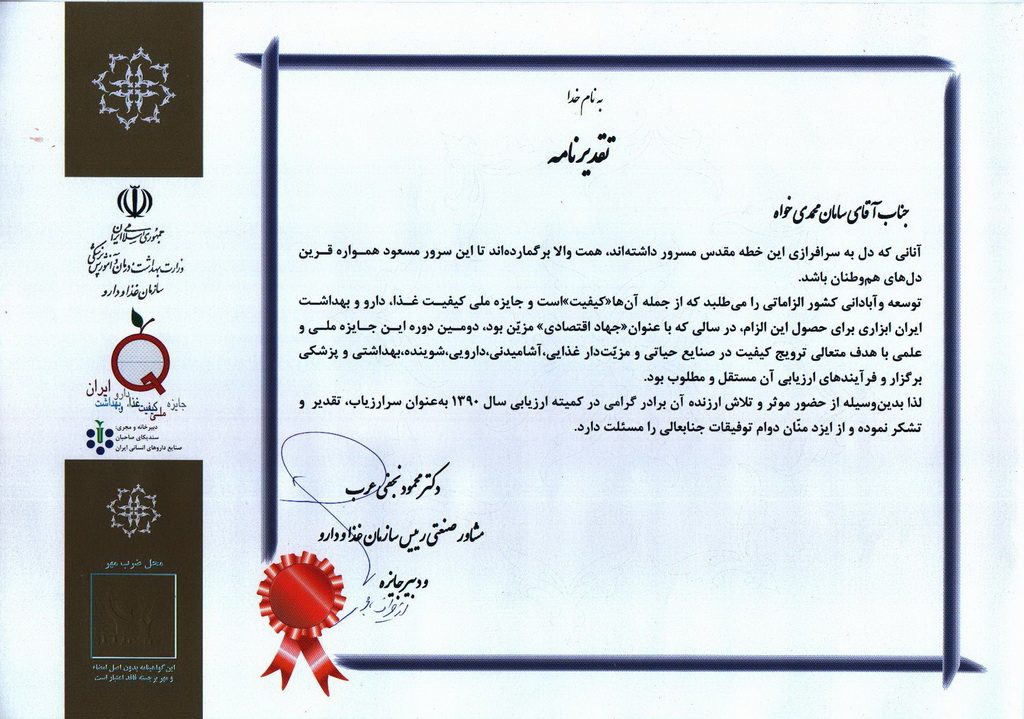 به نام خدا
تقدیرنامه
جناب آقای سامان محمدی خواه
آنانی که دل به سرافرازی این خطه مقدس مسرور داشته‌اند، همت والا برگمارده‌اند تا این سرور مسعود همواره قرین
دل‌های هم‌وطنان باشد.
توسعه وآبادانی کشور الزاماتی را می‌طلبد که از جمله آن‌ها«کیفیت»است و جایزه ملی کیفیت غذا، دارو و بهداشت
ایران ابزاری برای حصول این الزام، در سالی که با عنوان«جهاد اقتصادی» مزیّن بود، دومین دوره این جایزه ملی و
علمی با هدف متعالی ترویج کیفیت در صنایع حیاتی و مزیّت‌دار غذایی،آشامیدنی،دارویی،شوینده،بهداشتی و پزشکی
برگزار و فرآیندهای ارزیابی آن مستقل و مطلوب بود.
لذا بدین‌وسیله از حضور موثر و تلاش ارزنده آن برادر گرامی در کمیته ارزیابی سال ۱۳۹۰ به‌عنوان سرارزیاب، تقدیر و
تشکر نموده و از ایزد منّان دوام توفیقات جنابعالی را مسئلت دارد.
دکتر محمود نجفی عرب
مشاور صنعتی رییس سازمان غذا و دارو
و دبیر جایزه
جمهوری اسلامی ایران
وزارت بهداشت، درمان و آموزش پزشکی
سازمان غذا و دارو
جایزه ملی کیفیت غذا، دارو و بهداشت ایران
دبیرخانه و مجری:
سندیکای صاحبان
صنایع داروهای انسانی ایران
محل ضرب مهر
این گواهینامه بدون اصل امضاء
و مهر برجسته فاقد اعتبار است